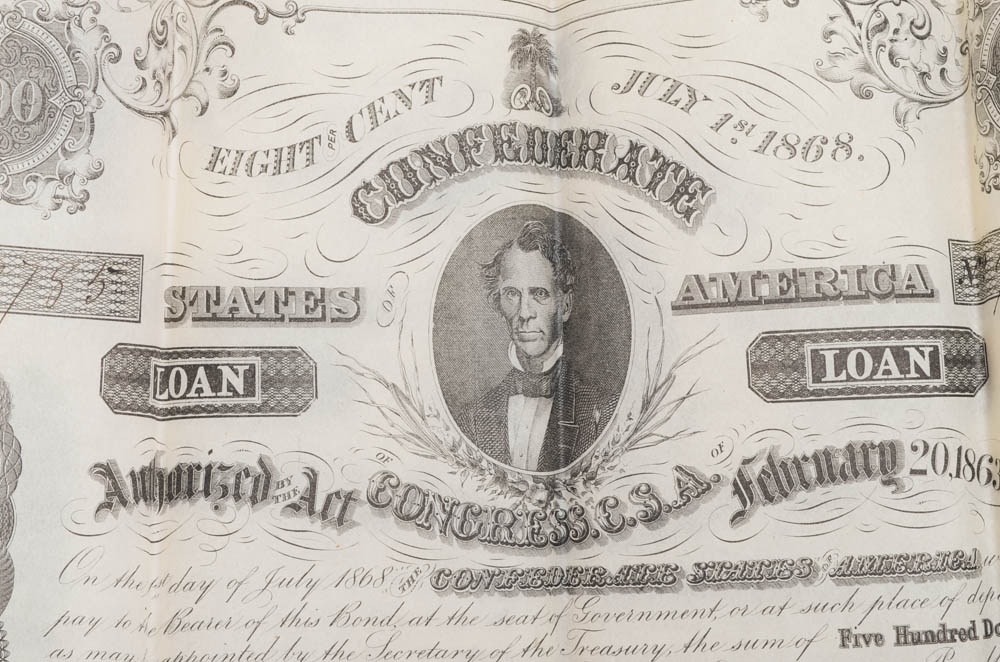 EIGHT PER CENT JULY 1st 1868.
CONFEDERATE
STATES OF AMERICA
LOAN LOAN
Authorized BY THE Act OF CONGRESS, C.S.A. OF February 20, 1863
On the 1st day of July 1868, THE CONFEDERATE STATES OF AMERICA
pay to the Bearer of this Bond, at the seat of Government, or at such place of
as may appointed by the Secretary of the Treasury, the sum of Five Hundred